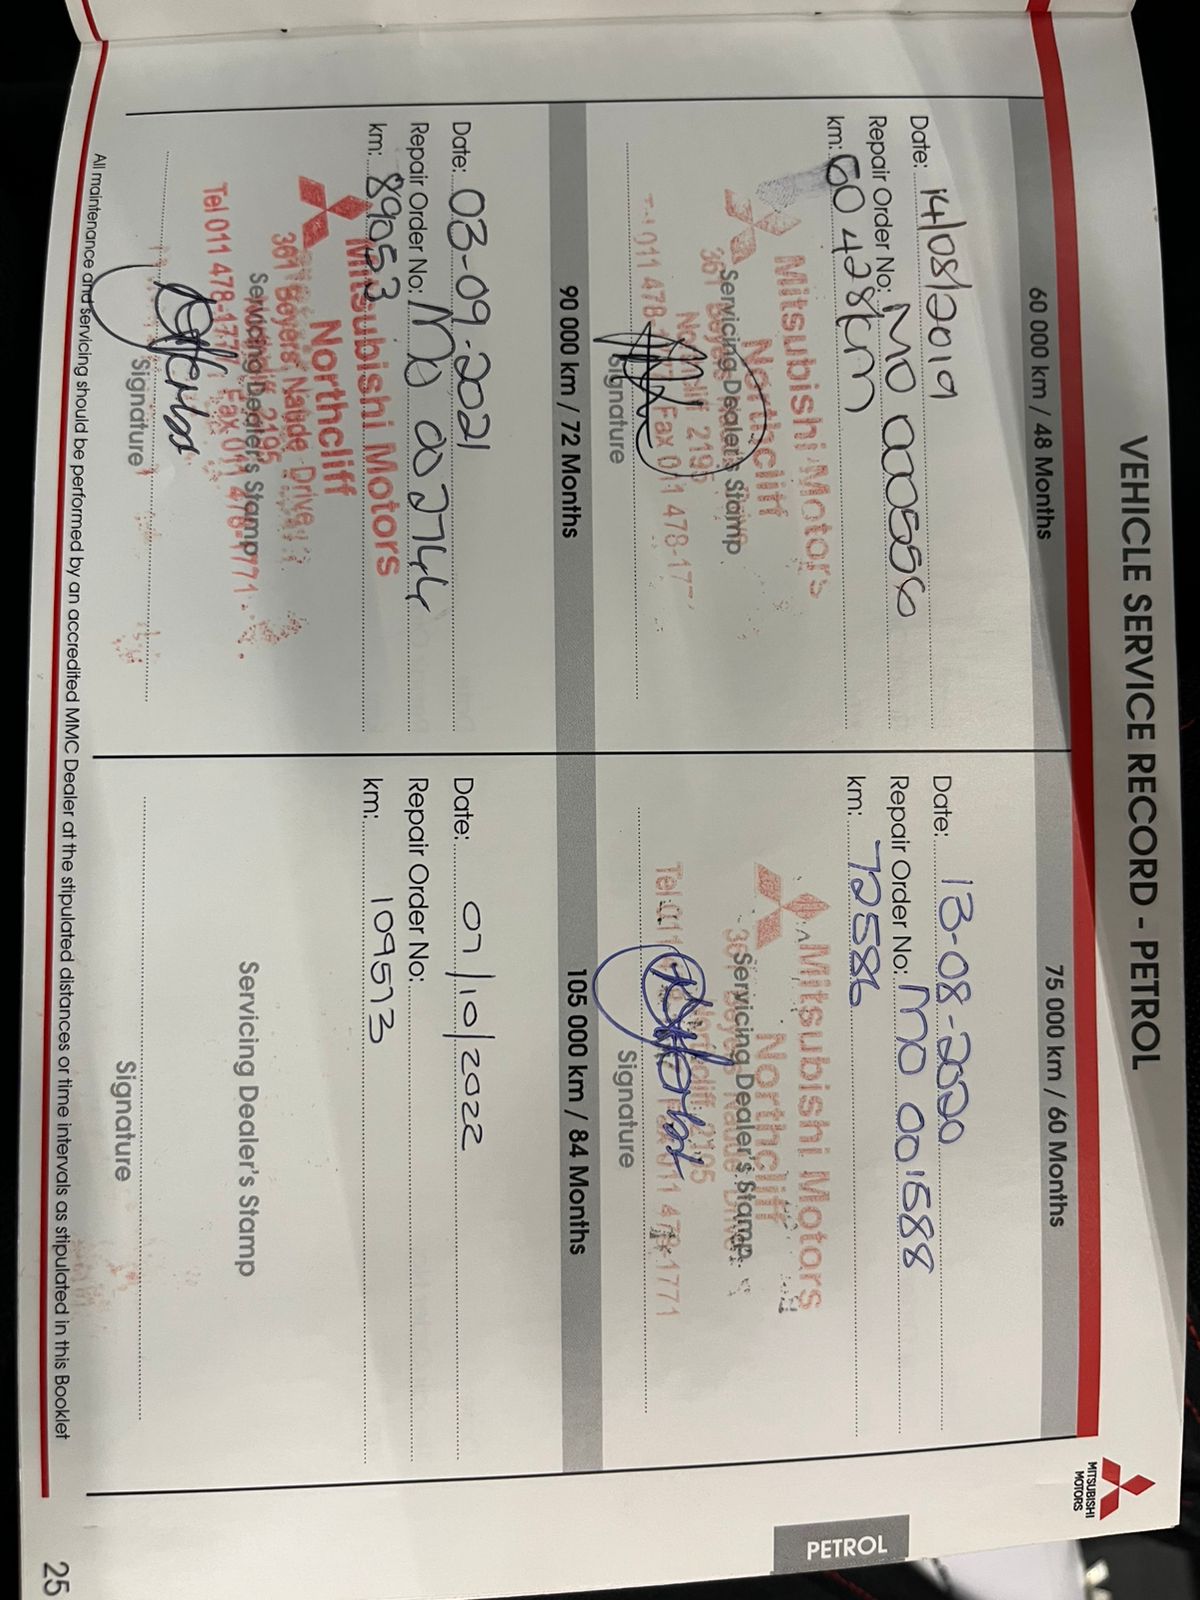 VEHICLE SERVICE RECORD - PETROL
MITSUBISHI
MOTORS
60 000 km / 48 Months
Date: 14/08/2019
Repair Order No: MO 000556
km: 60 428km
Mitsubishi Motors
Northcliff
Servicing Dealer's Stamp
Northcliff 2195
Tel 011 478-1771 Fax 011 478-177
Signature
75 000 km / 60 Months
Date: 13-08-2020
Repair Order No: MO 001588
km: 72586
Mitsubishi Motors
Northcliff
Servicing Dealer's Stamp
361 Beyers Naude Drive
Northcliff 2195
Tel 011 478-1771 Fax 011 478-1771
Signature
90 000 km / 72 Months
Date: 03-09-2021
Repair Order No: MO 002744
km: 89053
Mitsubishi Motors
Northcliff
361 Beyers Naude Drive
Servicing Dealer's Stamp
Northcliff 2195
Tel 011 478-1771 Fax 011 478-1771
Signature
105 000 km / 84 Months
Date: 07/10/2022
Repair Order No:
km: 109573
Servicing Dealer's Stamp
Signature
All maintenance and servicing should be performed by an accredited MMC Dealer at the stipulated distances or time intervals as stipulated in this Booklet
PETROL
25